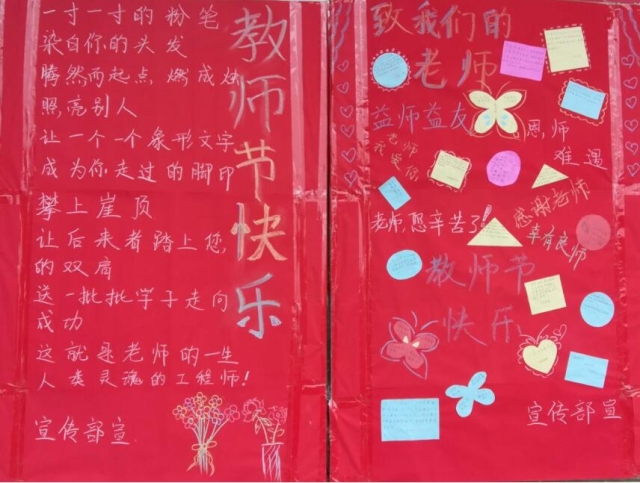 一寸一寸的粉笔
染白你的头发
腾然而起点燃成烛
照亮别人
让一个一个象形文字
成为你走过的脚印
攀上崖顶
让后来者踏上您
的双肩
送一批批学子走向
成功
这就是老师的一生
人类灵魂的工程师!
宣传部宣
教师节快乐
致我们的
老师
益师益友
恩师
难遇
老师
我爱你
感谢老师
老师,您辛苦了!
幸有良师
教师节
快乐
宣传部宣